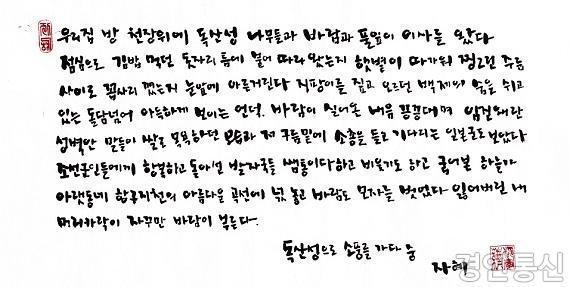 우리집 방 천장위에 독산성 나무들과 바람과 풀잎이 이사를 왔다
점심으로 김밥 먹던 돗자리 틈에 묻어 따라 왔는지 햇볕이 따가워 찡그린 주름
사이로 꼽사리 꼈는지 눈앞에 아른거린다 지팡이를 짚고 오르던 백제의 숨을 쉬고
있는 돌담넘어 아득하게 보이는 언덕. 바람이 실어온 내음 킁킁대며 임진왜란
성벽안 말들이 쌀로 목욕하던 모습과 저 구름밑에 소총을 들고 기다리는 일본군도 보았다
조선군인들에게 항복하고 돌아선 발자국들 쌤통이다하고 비웃기도 하고 굽어본 하늘가
아랫동네 황구지천의 아름다운 곡선에 넋 놓고 바람도 모자를 벗었다 잃어버린 내
머리카락이 자꾸만 바람이 부른다.
독산성으로 소풍을 가다 중
자혜
경인통신